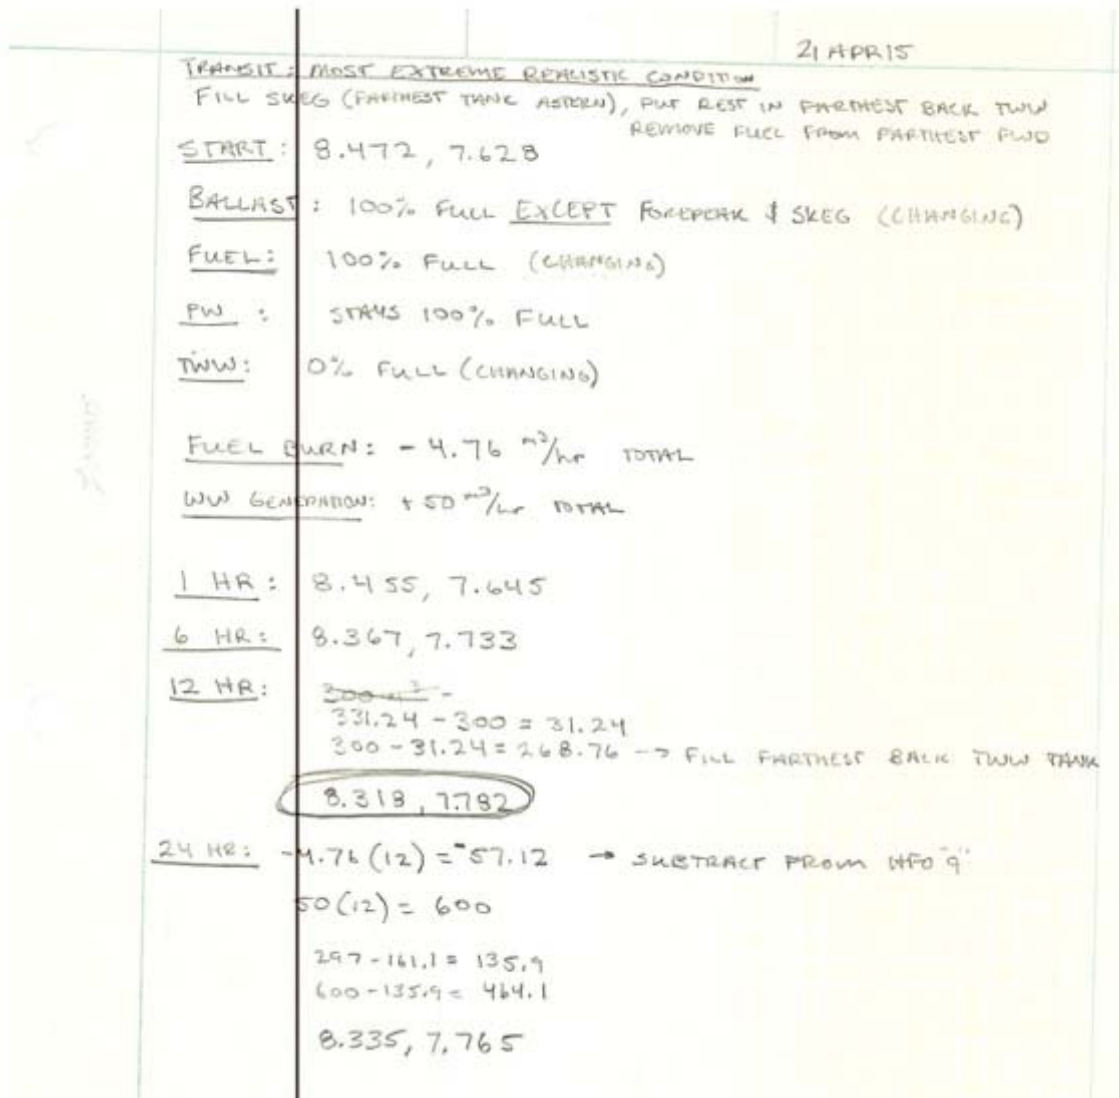 21 APR 15
TRANSIT: MOST EXTREME REALISTIC CONDITION
FILL SKEG (FARTHEST TANK ASTERN), PUT REST IN FARTHEST BACK TWW
REMOVE FUEL FROM FARTHEST FWD
START: 8.472, 7.628
BALLAST: 100% FULL EXCEPT FOREPEAK & SKEG (CHANGING)
FUEL: 100% FULL (CHANGING)
PW: STAYS 100% FULL
TWW: 0% FULL (CHANGING)
FUEL BURN: - 4.76 m³/hr TOTAL
WW GENERATION: + 50 m³/hr TOTAL
1 HR: 8.455, 7.645
6 HR: 8.367, 7.733
12 HR:
331.24 - 300 = 31.24
300 - 31.24 = 268.76 → FILL FARTHEST BACK TWW TANK
8.318, 7.782
24 HR: -4.76 (12) = -57.12 → SUBTRACT FROM HFO "9"
50 (12) = 600
297 - 161.1 = 135.9
600 - 135.9 = 464.1
8.335, 7.765